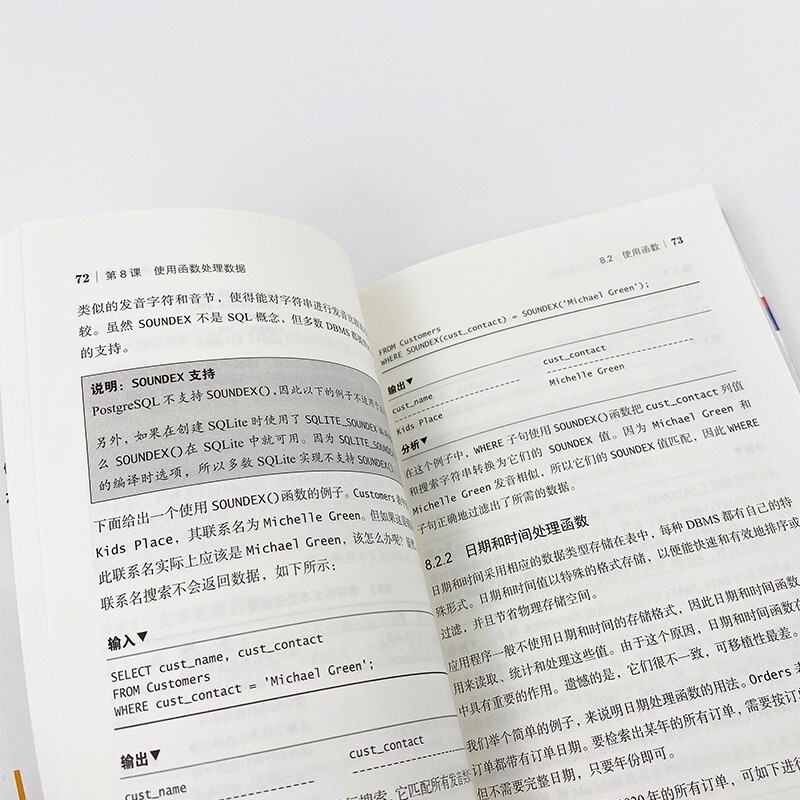 72 | 第 8 课 使用函数处理数据
类似的发音字符和音节，使得能对字符串进行发音比较
较。虽然 SOUNDEX 不是 SQL 概念，但多数 DBMS 都
的支持。
说明：SOUNDEX 支持
PostgreSQL 不支持 SOUNDEX()，因此以下的例子不适用
另外，如果在创建 SQLite 时使用了 SQLITE_SOUNDEX
么 SOUNDEX()在 SQLite 中就可用。因为 SQLITE_SOUNDEX
的编译时选项，所以多数 SQLite 实现不支持 SOUNDEX()
下面给出一个使用 SOUNDEX()函数的例子。Customers 表
Kids Place，其联系名为 Michelle Green。但如果这
此联系名实际上应该是 Michael Green，该怎么办呢？
联系名搜索不会返回数据，如下所示：
输入▼
SELECT cust_name, cust_contact
FROM Customers
WHERE cust_contact = 'Michael Green';
输出▼
cust_name cust_contact
搜索，它匹配所有发音
8.2 使用函数 | 73
FROM Customers
WHERE SOUNDEX(cust_contact) = SOUNDEX('Michael Green');
输出▼
cust_name cust_contact
Kids Place Michelle Green
分析▼
在这个例子中，WHERE 子句使用 SOUNDEX()函数把 cust_contact 列值
和搜索字符串转换为它们的 SOUNDEX 值。因为 Michael Green 和
Michelle Green 发音相似，所以它们的 SOUNDEX 值匹配，因此 WHERE
子句正确地过滤出了所需的数据。
8.2.2 日期和时间处理函数
日期和时间采用相应的数据类型存储在表中，每种 DBMS 都有自己的特
殊形式。日期和时间值以特殊的格式存储，以便能快速和有效地排序或
过滤，并且节省物理存储空间。
应用程序一般不使用日期和时间的存储格式，因此日期和时间函数
用来读取、统计和处理这些值。由于这个原因，日期和时间函数在
中具有重要的作用。遗憾的是，它们很不一致，可移植性最差。
我们举个简单的例子，来说明日期处理函数的用法。Orders
订单都带有订单日期。要检索出某年的所有订单，需要按订
但不需要完整日期，只要年份即可。
2020 年的所有订单，可如下进行